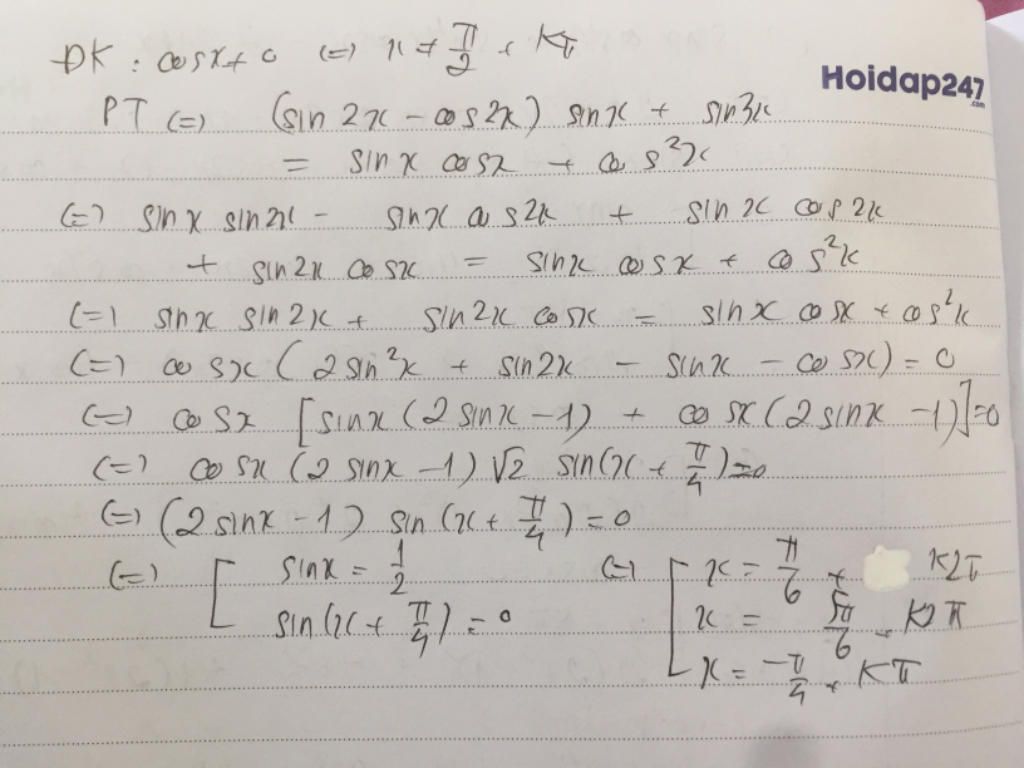 ĐK : cosx ≠ 0 (=) x ≠ π/2 + Kπ
Hoidap247
.com
PT (=) (sin 2x - cos 2x) sinx + sin3x
= sin x cosx + cos²x
(=) sinx sin2x - sinx cos2x + sinx cos2x
+ sin2x cosx = sinx cosx + cos²x
(=) sinx sin2x + sin2x cosx = sinx cosx + cos²x
(=) cosx (2sin²x + sin2x - sinx - cosx) = 0
(=) cosx [sinx (2sinx - 1) + cosx (2sinx - 1)] = 0
(=) cosx (2 sinx - 1) √2 sin(x + π/4) = 0
(=) (2sinx - 1) sin (x + π/4) = 0
(=) [ sinx = 1/2 (=) [ x = π/6 + K2π
sin(x + π/4) = 0 x = 5π/6 + K2π
x = -π/4 + Kπ